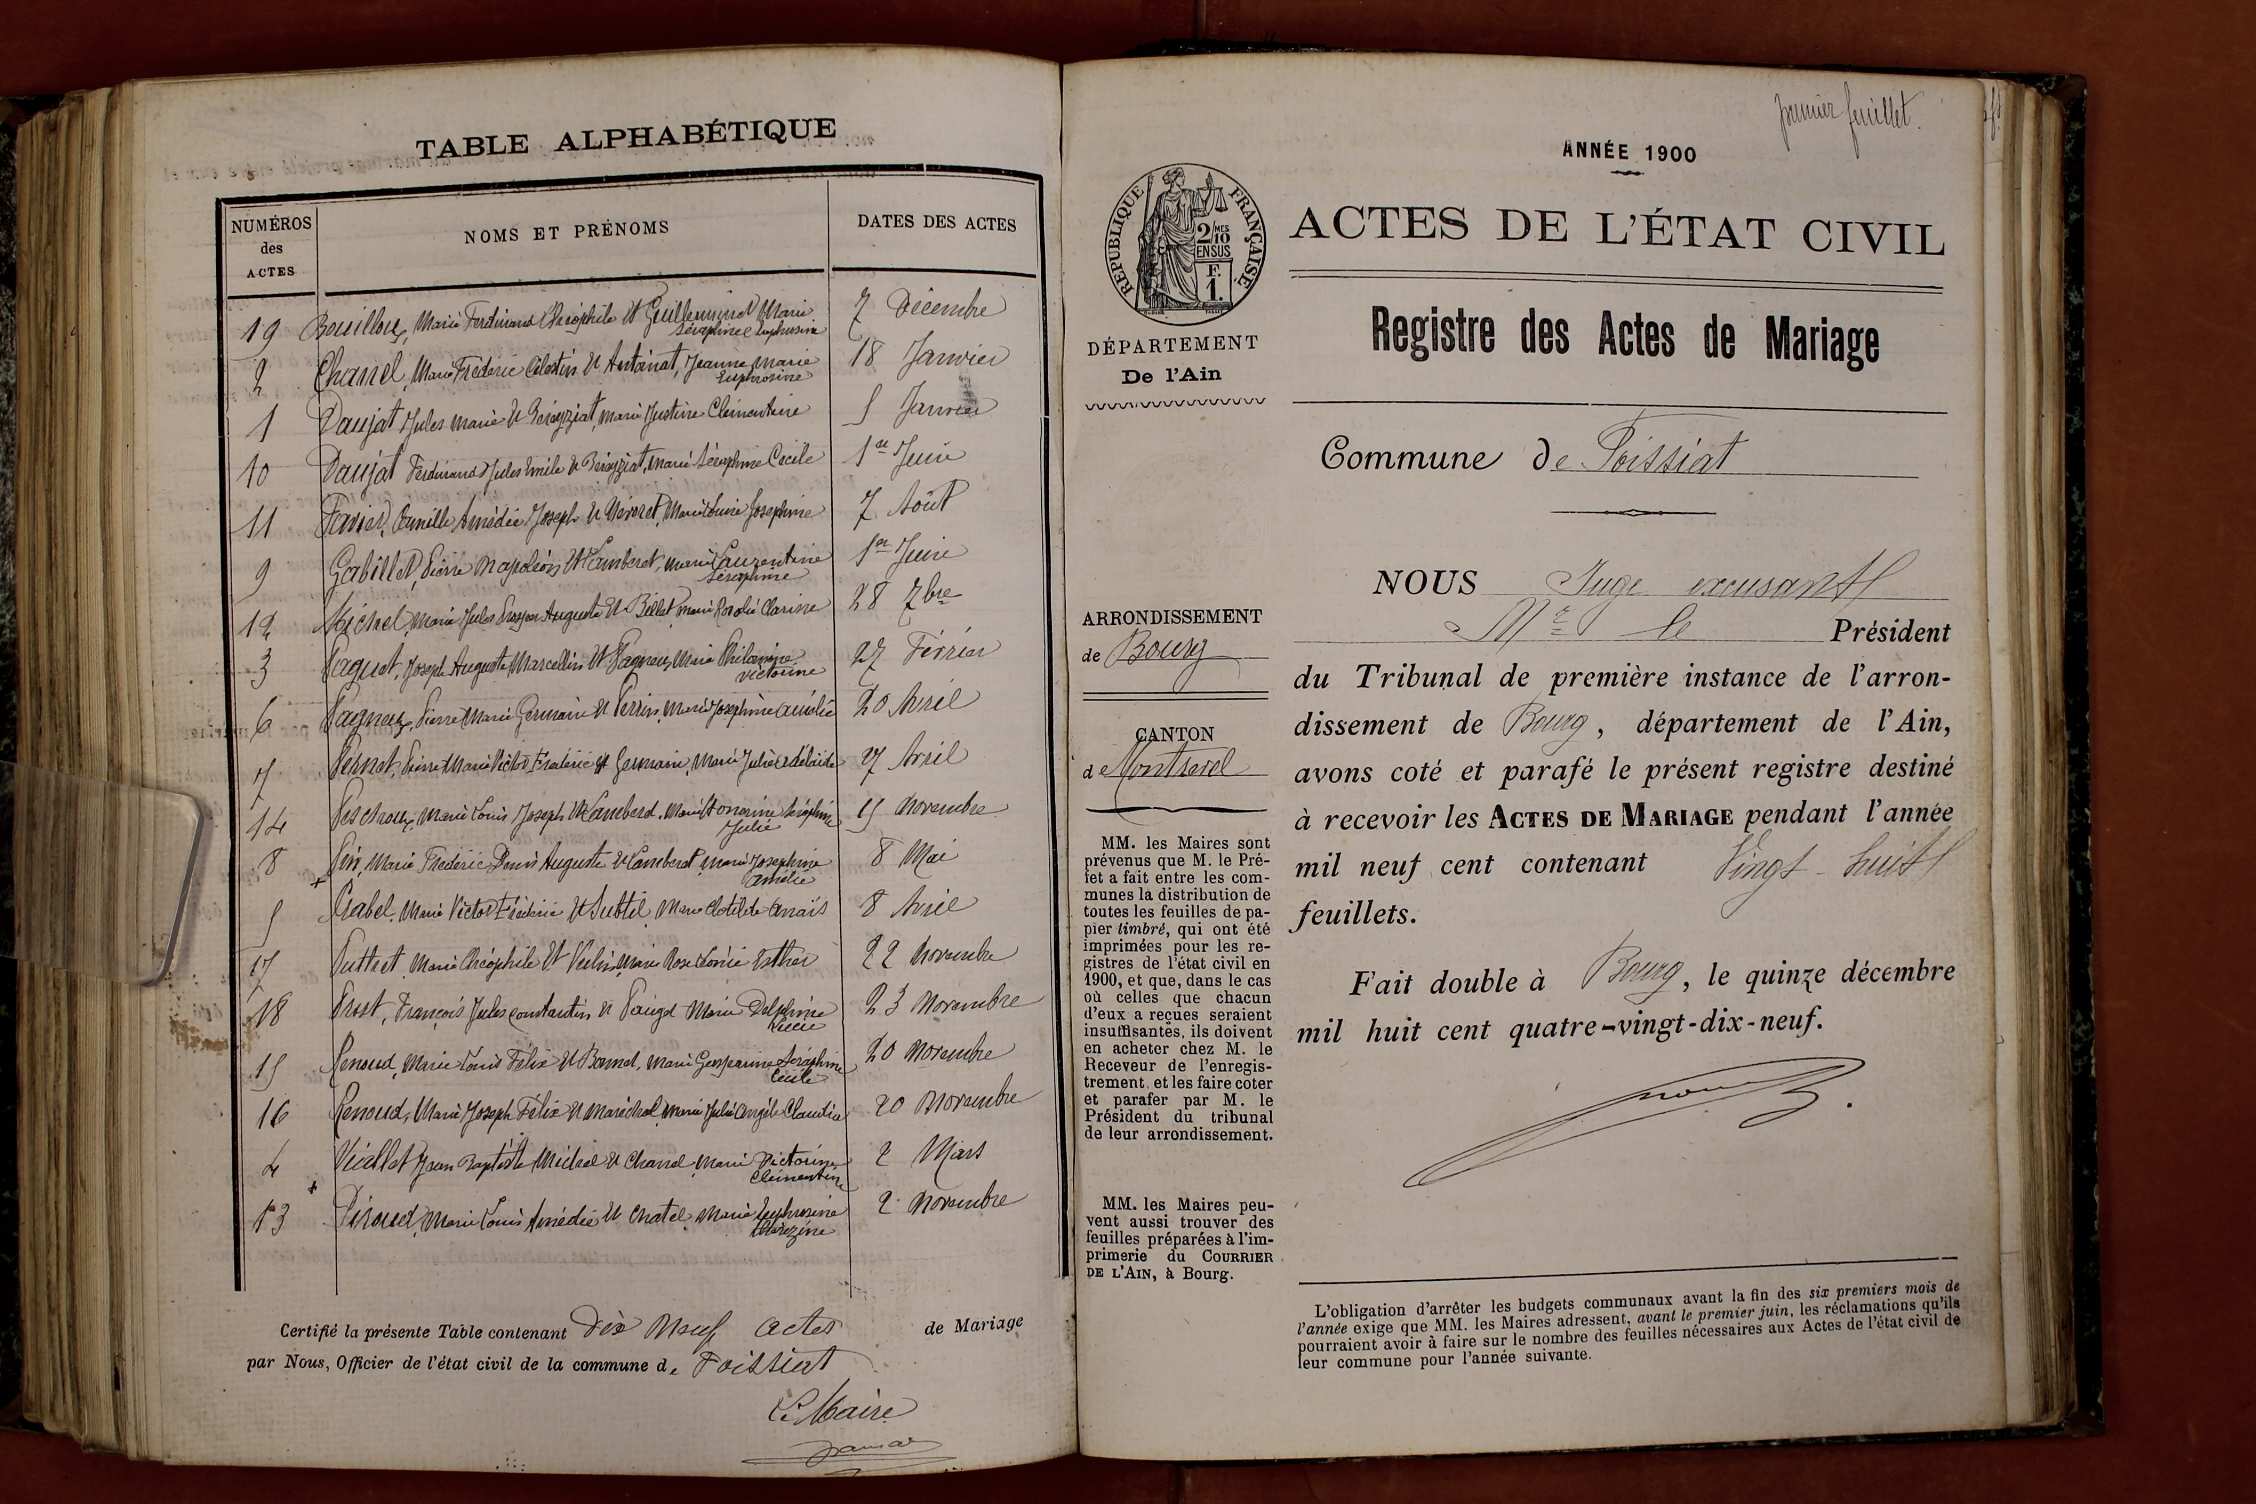 TABLE ALPHABÉTIQUE
NUMÉROS
des
ACTES
NOMS ET PRÉNOMS
DATES DES ACTES
19 Bouilloux, Marie Ferdinand Théophile et Guilleminot Marie
Séraphine Euphrosine
7 Décembre
2 Chanel, Marie Frédéric Célestin et Antoinat, Jeanne Marie
Euphrosine
18 Janvier
1 Daujat Jules Marie et Béreyziat, Marie Justine Clémentine
5 Janvier
10 Daujat Ferdinand Jules Emile et Béreyziat, Marie Séraphine Cécile
1er Juin
11 Favier, Camille Amédée Joseph et Marie Louise Josephine
7 Août
9 Gabillet, Pierre Napoléon et Lamberet, Marie Laurentine
Séraphine
1er Juin
12 Michel, Marie Jules Prosper Auguste et Billet Marie Rosalie Clarine
28 7bre
3 Paquet, Joseph Auguste Marcellin et Pagneux, Marie Philomine
Victorine
27 Février
6 Pagneux, Pierre Marie Germain et Perrin, Marie Josephine Amélie
20 Avril
7 Pernet, Pierre Marie Victor Frédéric et Germain, Marie Julie Adélaïde
27 Avril
14 Marie Louis Joseph et Lamberd, Marie Honorine Séraphine
Julie
15 Novembre
8 Pin, Marie Frédéric Denis Auguste et Lamberet, Marie Josephine
Amélie
8 Mai
5 Prabel, Marie Victor Frédéric et Subtil, Marie Clotilde Anaïs
8 Avril
17 Puttet, Marie Théophile et Vulin, Marie Rose Léonie Esther
22 Novembre
18 Prost, François Jules Constantin et Marie Delphine
Lucie
23 Novembre
15 Renoud, Marie Louis Félix et Marie Gasparine Séraphine
Cécile
20 Novembre
16 Renoud, Marie Joseph Félix et Maréchal Marie Julie Angèle Claudia
20 Novembre
4 Viallet Jean Baptiste Michel et Chanel, Marie Victorine
Clémentine
2 Mars
13 Piroud, Marie Louis Amédée et Chatel, Marie Euphrosine
2 Novembre
Certifié la présente Table contenant Dix Neuf actes de Mariage
par Nous, Officier de l'état civil de la commune de Foissiat
Le Maire
premier feuillet.
ANNÉE 1900
RÉPUBLIQUE FRANÇAISE
2/10MES
EN SUS
F.
1.
ACTES DE L'ÉTAT CIVIL
Registre des Actes de Mariage
DÉPARTEMENT
De l'Ain
Commune de Foissiat
ARRONDISSEMENT
de Bourg
CANTON
de Montrevel
MM. les Maires sont
prévenus que M. le Pré-
fet a fait entre les com-
munes la distribution de
toutes les feuilles de pa-
pier timbré, qui ont été
imprimées pour les re-
gistres de l'état civil en
1900, et que, dans le cas
où celles que chacun
d'eux a reçues seraient
insuffisantes, ils doivent
en acheter chez M. le
Receveur de l'enregis-
trement, et les faire coter
et parafer par M. le
Président du tribunal
de leur arrondissement.
MM. les Maires peu-
vent aussi trouver des
feuilles préparées à l'im-
primerie du COURRIER
DE L'AIN, à Bourg.
NOUS Juge excusant
Mr le Président
du Tribunal de première instance de l'arron-
dissement de Bourg, département de l'Ain,
avons coté et parafé le présent registre destiné
à recevoir les ACTES DE MARIAGE pendant l'année
mil neuf cent contenant Vingt-huit
feuillets.
Fait double à Bourg, le quinze décembre
mil huit cent quatre-vingt-dix-neuf.
L'obligation d'arrêter les budgets communaux avant la fin des six premiers mois de
l'année exige que MM. les Maires adressent, avant le premier juin, les réclamations qu'ils
pourraient avoir à faire sur le nombre des feuilles nécessaires aux Actes de l'état civil de
leur commune pour l'année suivante.